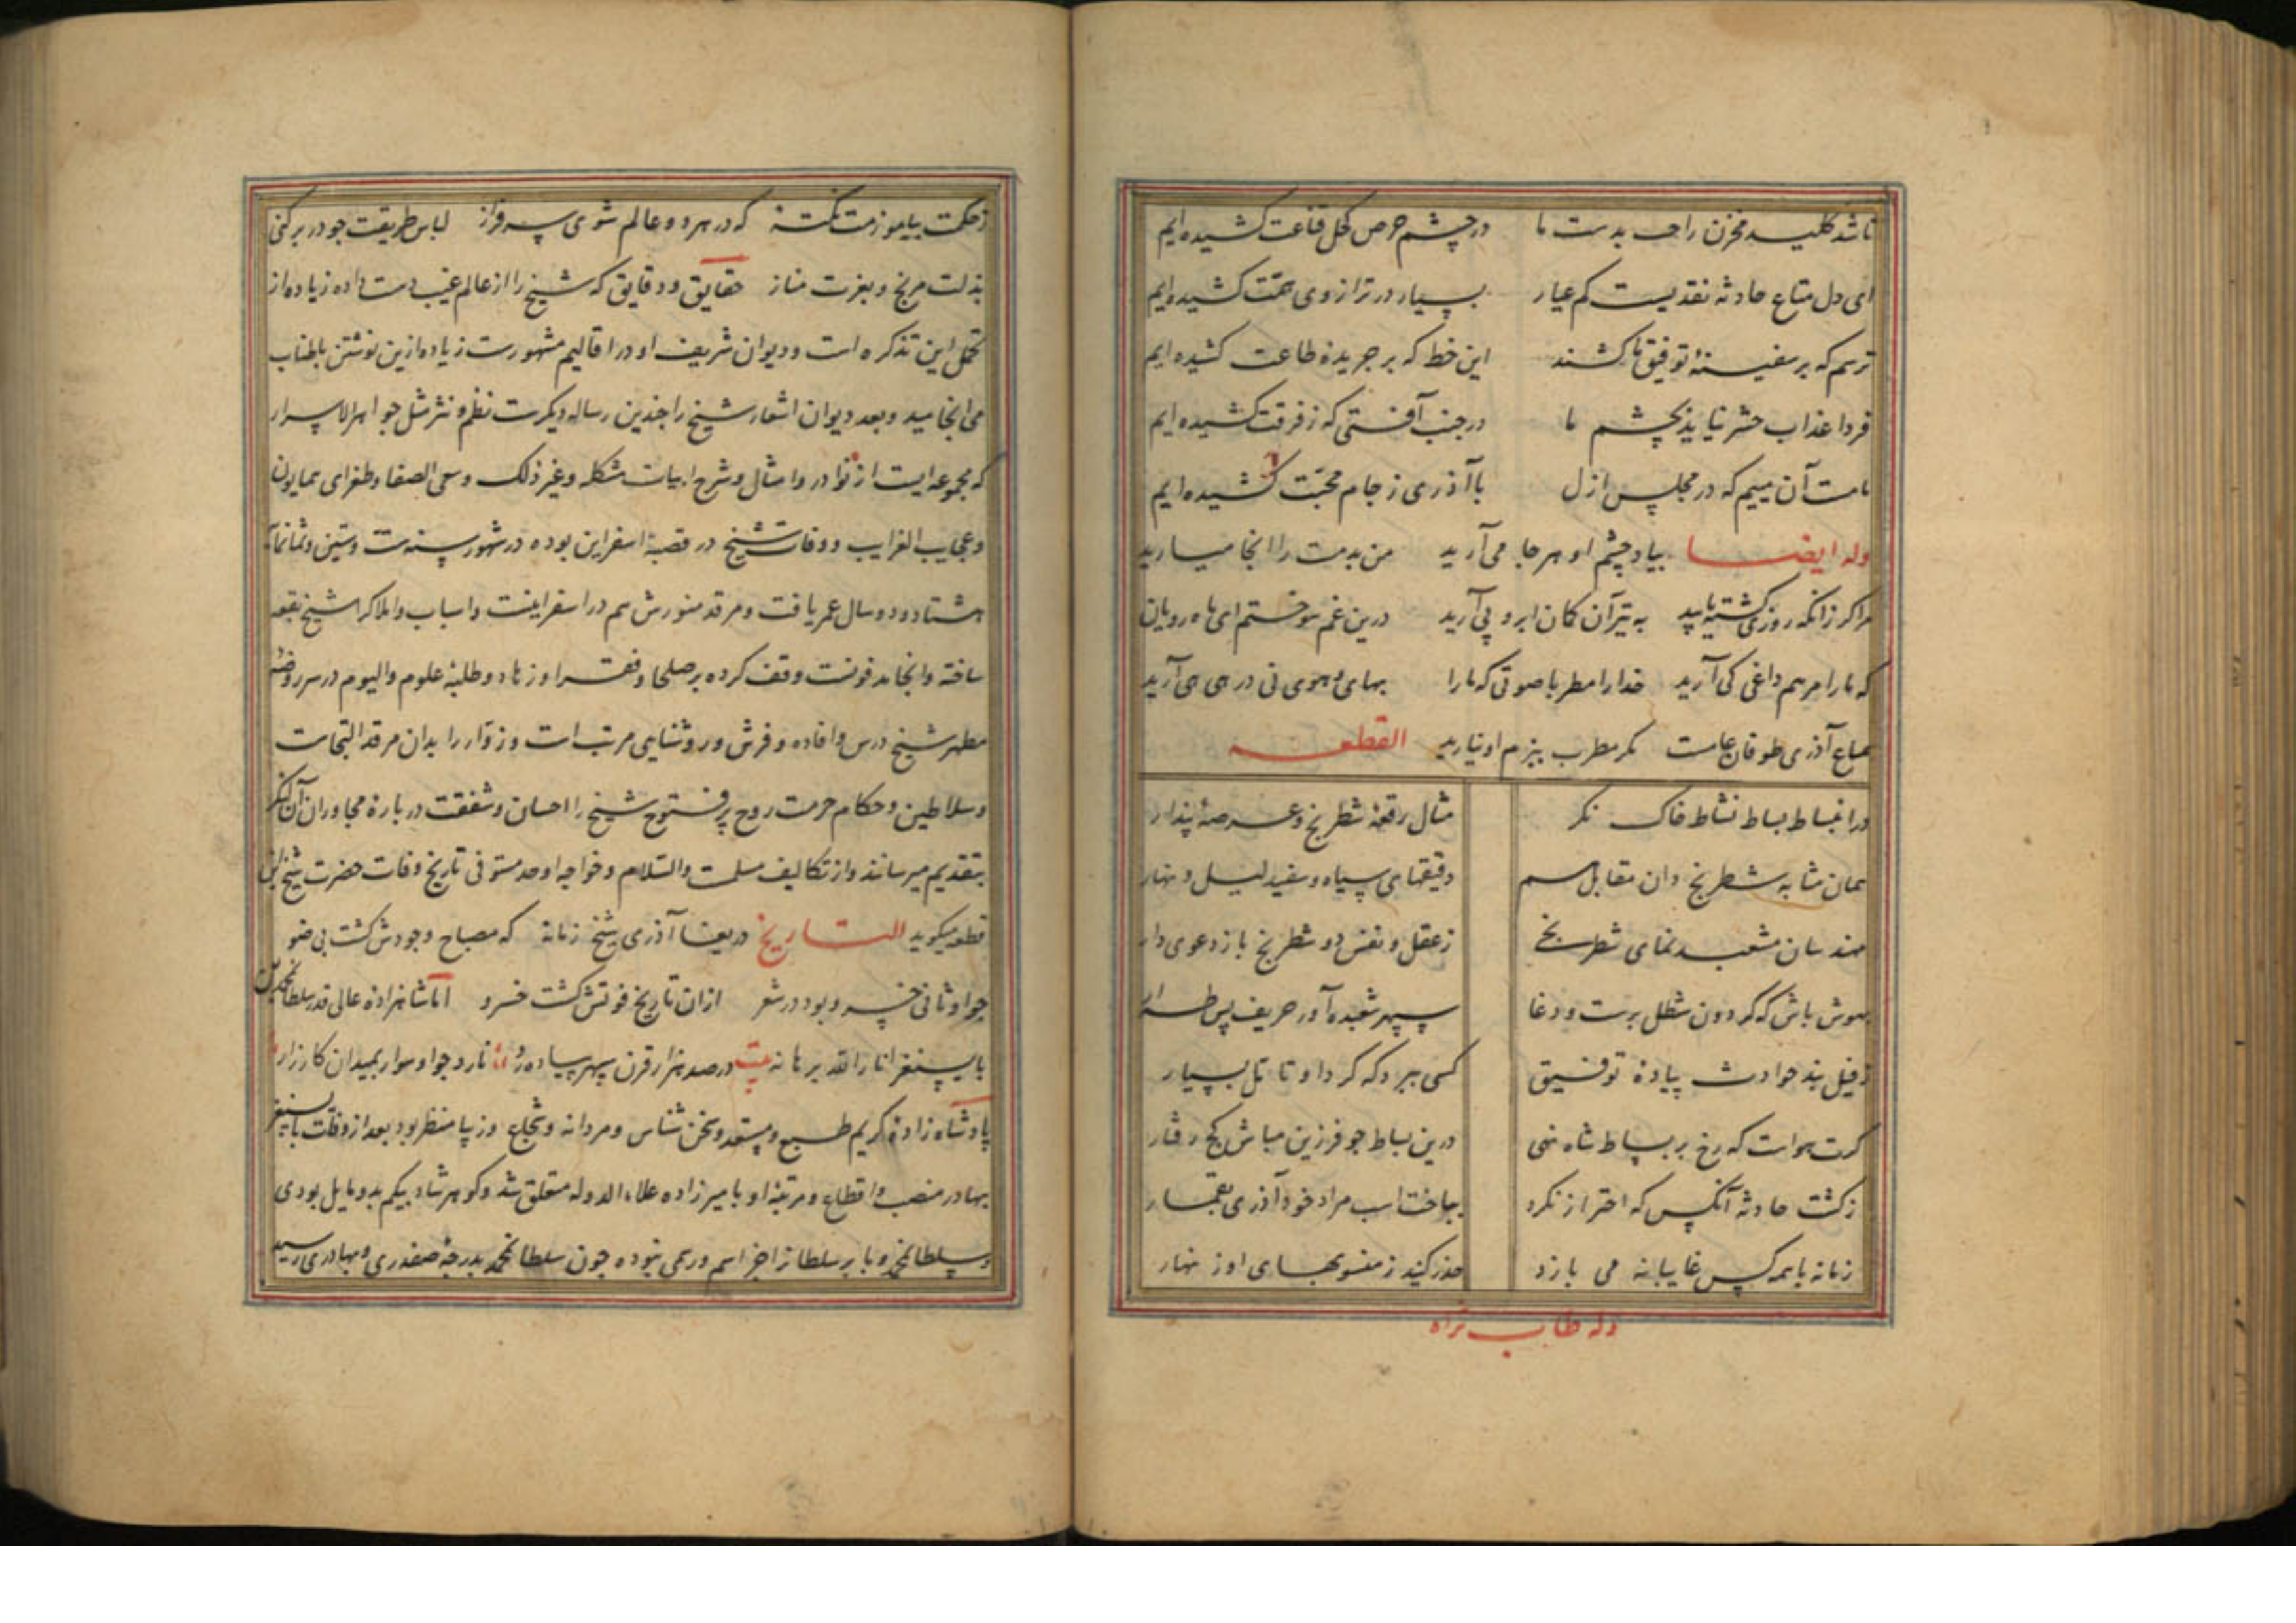 تا شد کلید مخزن راحت بدست ما در چشم حرص کحل قناعت کشیده ایم
ای دل متاع حادثه نقدیست کم عیار بسیار در ترازوی همت کشیده ایم
ترسم که بر سفینه توفیق ما کشند این خط که بر جریده طاعت کشیده ایم
فردا عذاب حشر نیاید بچشم ما در جنب آفتی که ز فرقت کشیده ایم
ما مست آن مییم که در مجلس ازل با آذری ز جام محبت کشیده ایم
وله ایضا بیاد چشم او هر جا می آرید من بدمست را انجا میارید
مرا کر زانکه روزی کشته یابید به تیر آن کمان ابرو پی آرید درین غم سوختم ای ماه رویان
که ما را مرهم داغی کی آرید خدا را مطربا صوتی که ما را بهای و هوی نی در هی هی آرید
سماع آذری طوفان عامست مکر مطرب ببزم او نیارید القطعه
در انبساط بساط نشاط خاک نکر مثال رقعه شطرنج و عرصه پندار
همان مشابه شطرنج دان مقابل هم دقیقهای سیاه و سفید لیل و نهار
مهندسان مشعبد نمای شطرنج ز عقل و نفس دو شطرنج باز دعوی دار
بهوش باش که کردون شطل برست و دغا سپهر شعبده آور حریف پس طرار
ز فیل بند حوادث پیاده توفیق کسی برد که کرد او تامل بسیار
کرت هواست که رخ بر بساط شاه نهی درین بساط جو فرزین مباش کج رفتار
ز کشت حادثه آنکس که احتراز نکرد بباخت اسب مراد خود آذری بقمار
زمانه با همه کس غایبانه می بازد حذر کنید ز منصوبهای او زنهار
وله طاب ثراه
ز حکمت بیاموزمت نکته که در هر دو عالم شوی سرفراز لباس طریقت جو در بر کنی
بذلت مرنج و بعزت مناز حقایق و دقایق که شیخ را از عالم غیب دست داده زیاده از
تحمل این تذکره است و دیوان شریف او در اقالیم مشهورست زیاده ازین نوشتن باطناب
می انجامید و بعد دیوان اشعار شیخ را جندین رساله دیکرست نظم و نثر مثل جواهر الاسرار
که مجموعه ایست از نوادر و امثال و شرح ابیات مشکله و غیر ذلک و سعی الصفا و طغرای همایون
و عجایب الغرایب و وفات شیخ در قصبه اسفراین بوده در شهور سنه ست و ستین و ثمانمآ
هشتاد و دو سال عمر یافت و مرقد منورش هم در اسفراینست و اسباب و املاک را شیخ بقعه
ساخته وانجا مدفونست وقف کرده بر صلحا و فقرا و زهاد و طلبه علوم و الیوم در سر روضه
مطهر شیخ درس و افاده و فرش و روشنایی مرتب است و زوار را بدان مرقد التجاست
و سلاطین و حکام حرمت روح پر فتوح شیخ را احسان و شفقت درباره مجاوران آن لنکر
بتقدیم میرسانند و از تکالیف مسلمست والسلام و خواجه اوحد مستوفی تاریخ وفات حضرت شیخ این
قطعه میکوید التاریخ دریغا آذری شیخ زمانه که مصباح وجودش کشت بی ضو
جو او ثانی خسرو بود در شعر ازان تاریخ فوتش کشت خسرو اما شاهزاده عالی قدر سلطان محمد بن
بایسنغر انار الله برهانه بیت در صد هزار قرن سپهر پیاده رو نارد جو او سوار بمیدان کارزار
پادشاه زاده کریم طبع و مستعد و سخن شناس و مردانه و شجاع و زیبا منظر بود بعد از وفات بایسنغر
بهادر منصب و اقطاع و مرتبه او با میرزاده علاء الدوله متعلق شد و کوهرشاد بیکم بدو مایل بودی
و سلطان محمد و بابر سلطان را جز اسم و رسمی نبوده جون سلطان محمد بدرجه صفدری و بهادری رسید